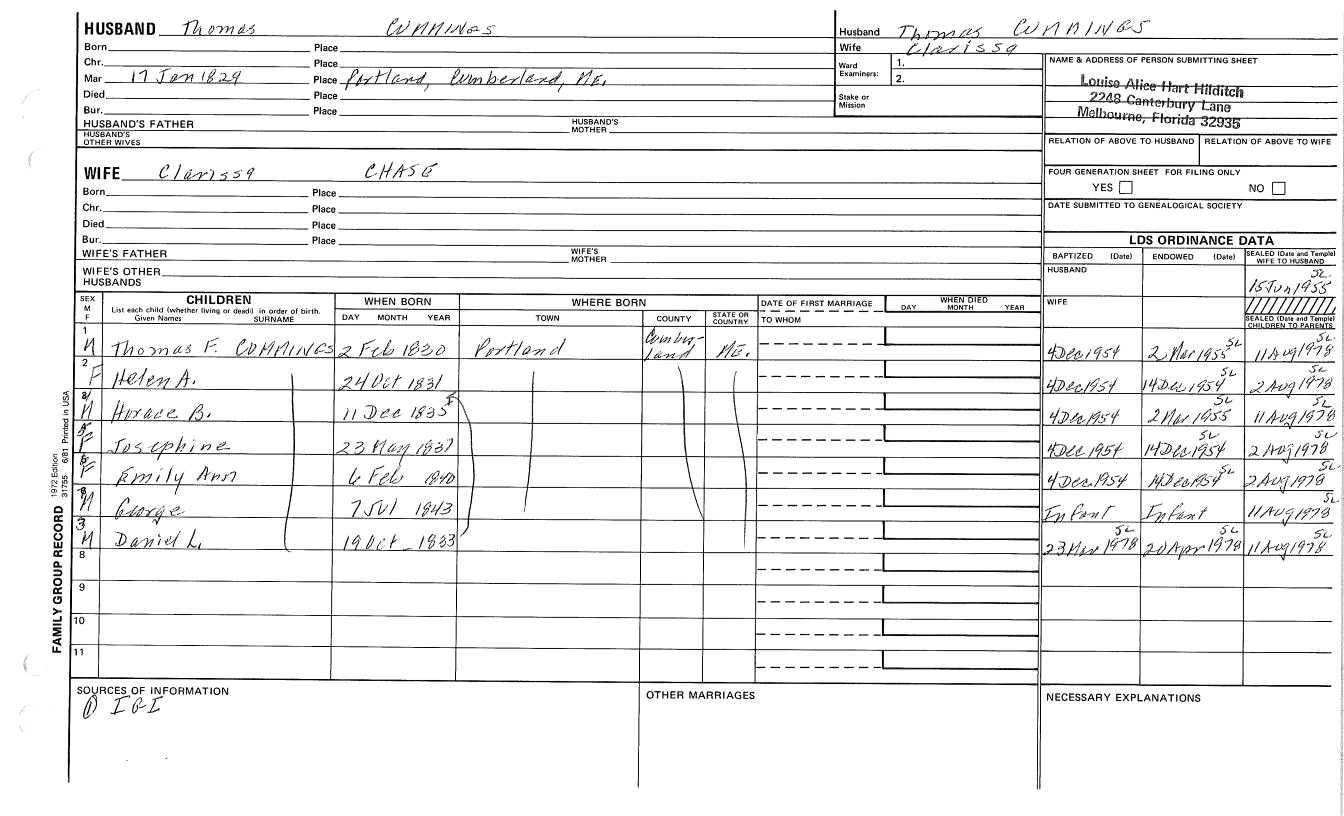 HUSBAND Thomas CUMMINGS
Born Place
Chr. Place
Mar 17 Jan 1829 Place Portland, Cumberland, ME.
Died Place
Bur. Place
HUSBAND'S FATHER HUSBAND'S MOTHER
HUSBAND'S OTHER WIVES
Husband Thomas CUMMINGS
Wife Clarissa
Ward Examiners: 1.
2.
Stake or Mission
NAME & ADDRESS OF PERSON SUBMITTING SHEET
Louise Alice Hart Hilditch
2248 Canterbury Lane
Melbourne, Florida 32935
RELATION OF ABOVE TO HUSBAND RELATION OF ABOVE TO WIFE
FOUR GENERATION SHEET FOR FILING ONLY
YES NO
DATE SUBMITTED TO GENEALOGICAL SOCIETY
WIFE Clarissa CHASE
Born Place
Chr. Place
Died Place
Bur. Place
WIFE'S FATHER WIFE'S MOTHER
WIFE'S OTHER HUSBANDS
LDS ORDINANCE DATA
BAPTIZED (Date) ENDOWED (Date) SEALED (Date and Temple) WIFE TO HUSBAND
HUSBAND SL
15 Jun 1955
WIFE
SEALED (Date and Temple) CHILDREN TO PARENTS
SEX M F
CHILDREN
List each child (whether living or dead) in order of birth.
Given Names SURNAME
WHEN BORN
DAY MONTH YEAR
WHERE BORN
TOWN COUNTY STATE OR COUNTRY
DATE OF FIRST MARRIAGE
TO WHOM
WHEN DIED
DAY MONTH YEAR
1 M Thomas F. CUMMINGS 2 Feb 1830 Portland Cumberland ME. 4 Dec 1954 2 Mar 1955 SL 11 Aug 1978 SL
2 F Helen A. 24 Oct 1831 4 Dec 1954 14 Dec 1954 SL 2 Aug 1978 SL
M Horace B. 11 Dec 1835 4 Dec 1954 2 Mar 1955 SL 11 Aug 1978 SL
5 F Josephine 23 May 1837 4 Dec 1954 14 Dec 1954 SL 2 Aug 1978 SL
6 F Emily Ann 6 Feb 1840 4 Dec 1954 14 Dec 1954 SL 2 Aug 1978 SL
M George 7 Jul 1843 Infant Infant 11 Aug 1978 SL
3 M Daniel L. 19 Oct 1833 23 Mar 1978 SL 20 Apr 1978 SL 11 Aug 1978 SL
8
9
10
11
SOURCES OF INFORMATION
① IGI
OTHER MARRIAGES
NECESSARY EXPLANATIONS
FAMILY GROUP RECORD 1972 Edition
31755 6/81 Printed in USA